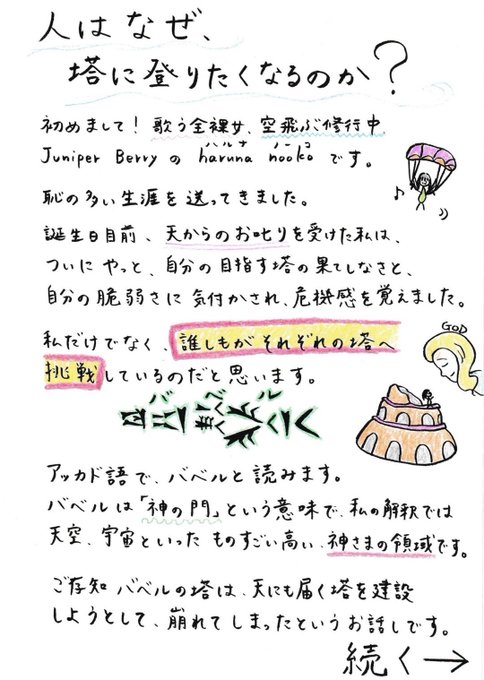 人はなぜ、
塔に登りたくなるのか?
初めまして! 歌う全裸女、空飛ぶ修行中、
ハルナ ノーコ
Juniper Berry の haruna nooko です。
恥の多い生涯を送ってきました。
誕生日目前、天からのお叱りを受けた私は、
ついに やっと、自分の目指す塔の果てしなさと、
自分の脆弱さに 気付かされ、危機感を覚えました。
GOD
私だけでなく、誰しもが それぞれの塔へ
挑戦しているのだと思います。
バ ベ ル
アッカド語で、バベルと読みます。
バベルは「神の門」という意味で、私の解釈では
天空、宇宙といった ものすごい高い、神さまの領域です。
ご存知 バベルの塔は、天にも届く塔を建設
しようとして、崩れて しまったというお話しです。
続く→